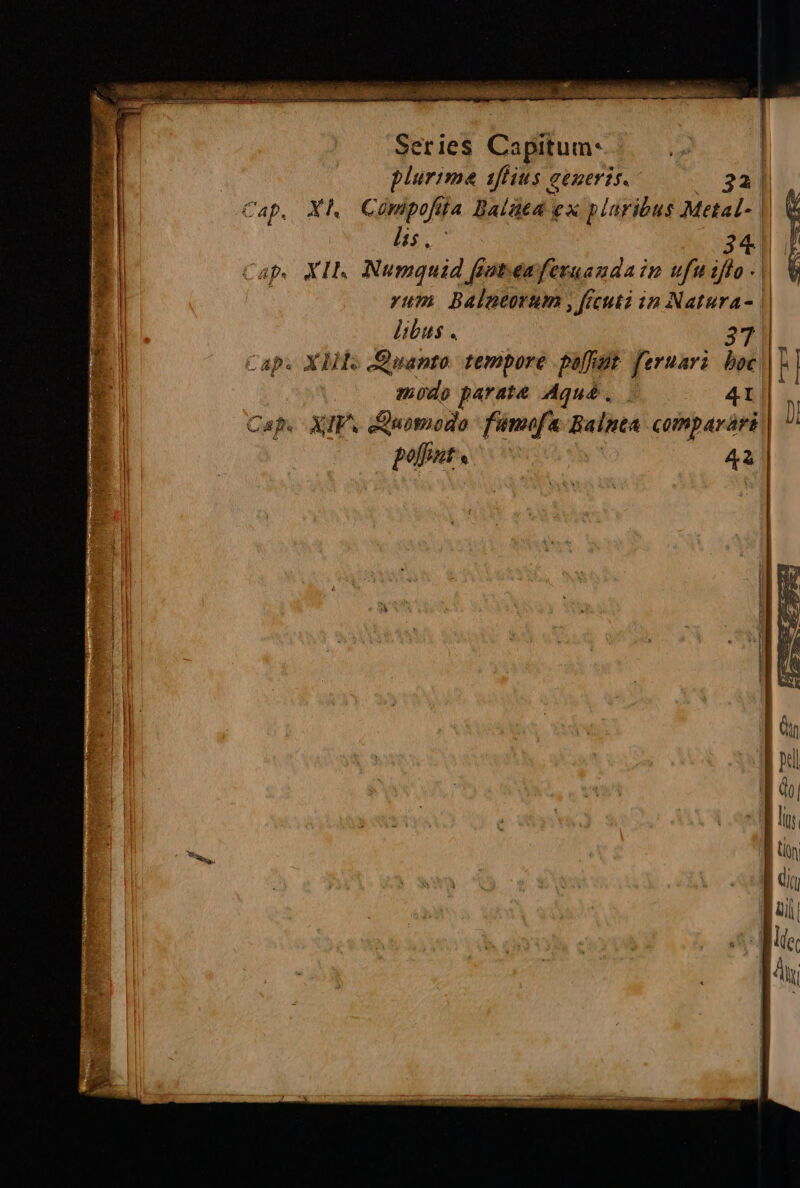 Series Capitum.
plurimæ istius generis. 32
Cap. XI. Composita Balnea ex pluribus Metal-
lis. 34
Cap. XII. Numquid sint ea seruanda in usu isto-
rum Balneorum, sicuti in Natura-
libus. 37
Cap. XIII. Quanto tempore possint seruari hoc
modo paratæ Aquæ. 41
Cap. XIV. Quomodo fumosa Balnea comparari
possint. 42